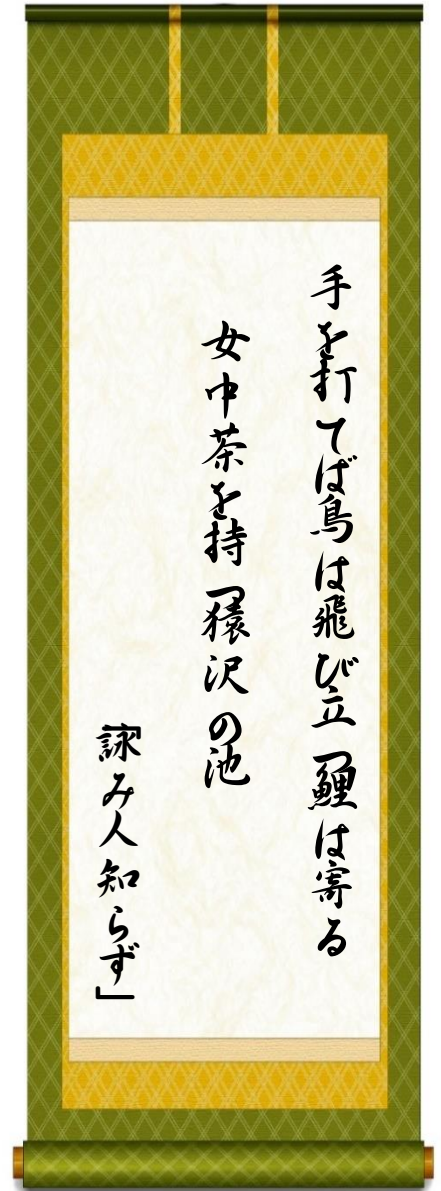 手を打てば鳥は飛び立つ鯉は寄る
女中茶を持つ猿沢の池
「詠み人知らず」